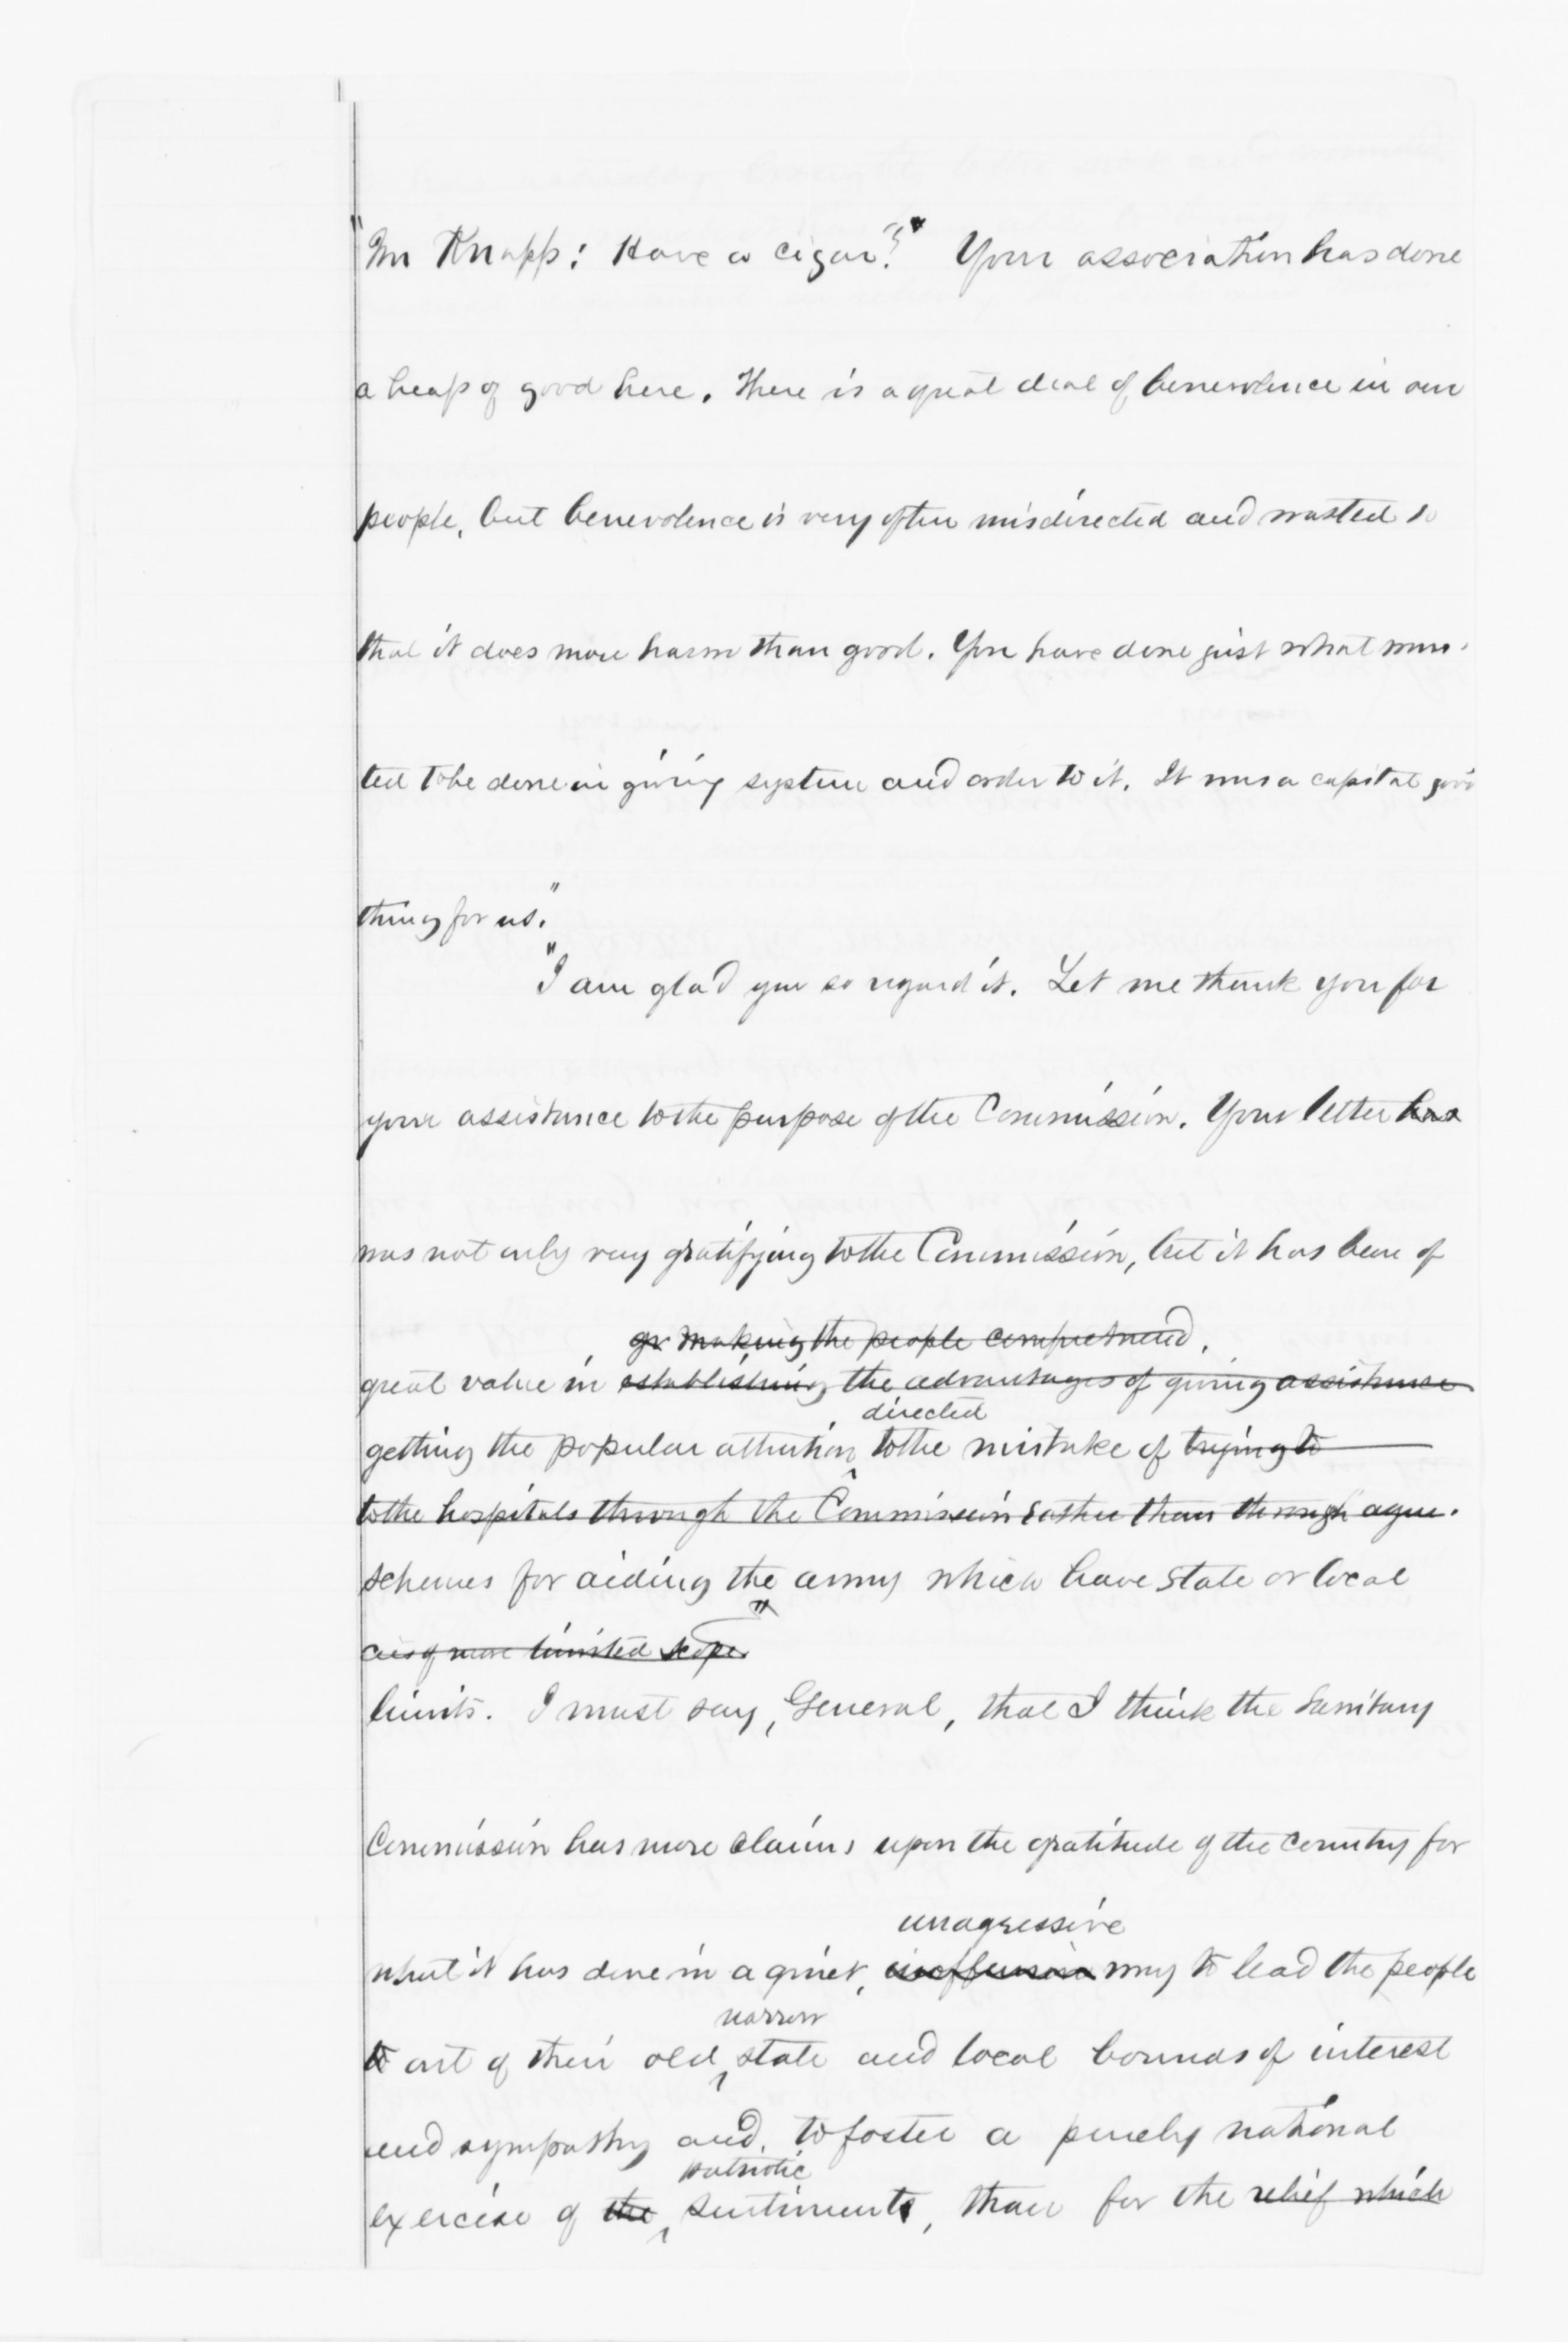 "Mr Knapp: Have a cigar?" Your association has done
a heap of good here. There is a great deal of benevolence in our
people, but benevolence is very often misdirected and wasted so
that it does more harm than good. You have done just what wan-
ted to be done in giving system and order to it. It was a capital good
thing for us."
"I am glad you so regard it. Let me thank you for
your assistance to the purpose of the Commission. Your letter has
was not only very gratifying to the Commission, but it has been of
or making the people comprehend,
great value in establishing the advantages of giving assistance
directed
getting the popular attention to the mistake of trying to
to the hospitals through the Commission rather than through agen-
schemes for aiding the army which have state or local
cies of more limited scope."
limits. I must say, General, that I think the Sanitary
Commission has more claims upon the gratitude of the country for
unagressive
what it has done in a quiet, inoffensive way to lead the people
narrow
to out of their old state and local bounds of interest
and sympathy and, to foster a purely national
patriotic
exercise of the sentiments, than for the relief which